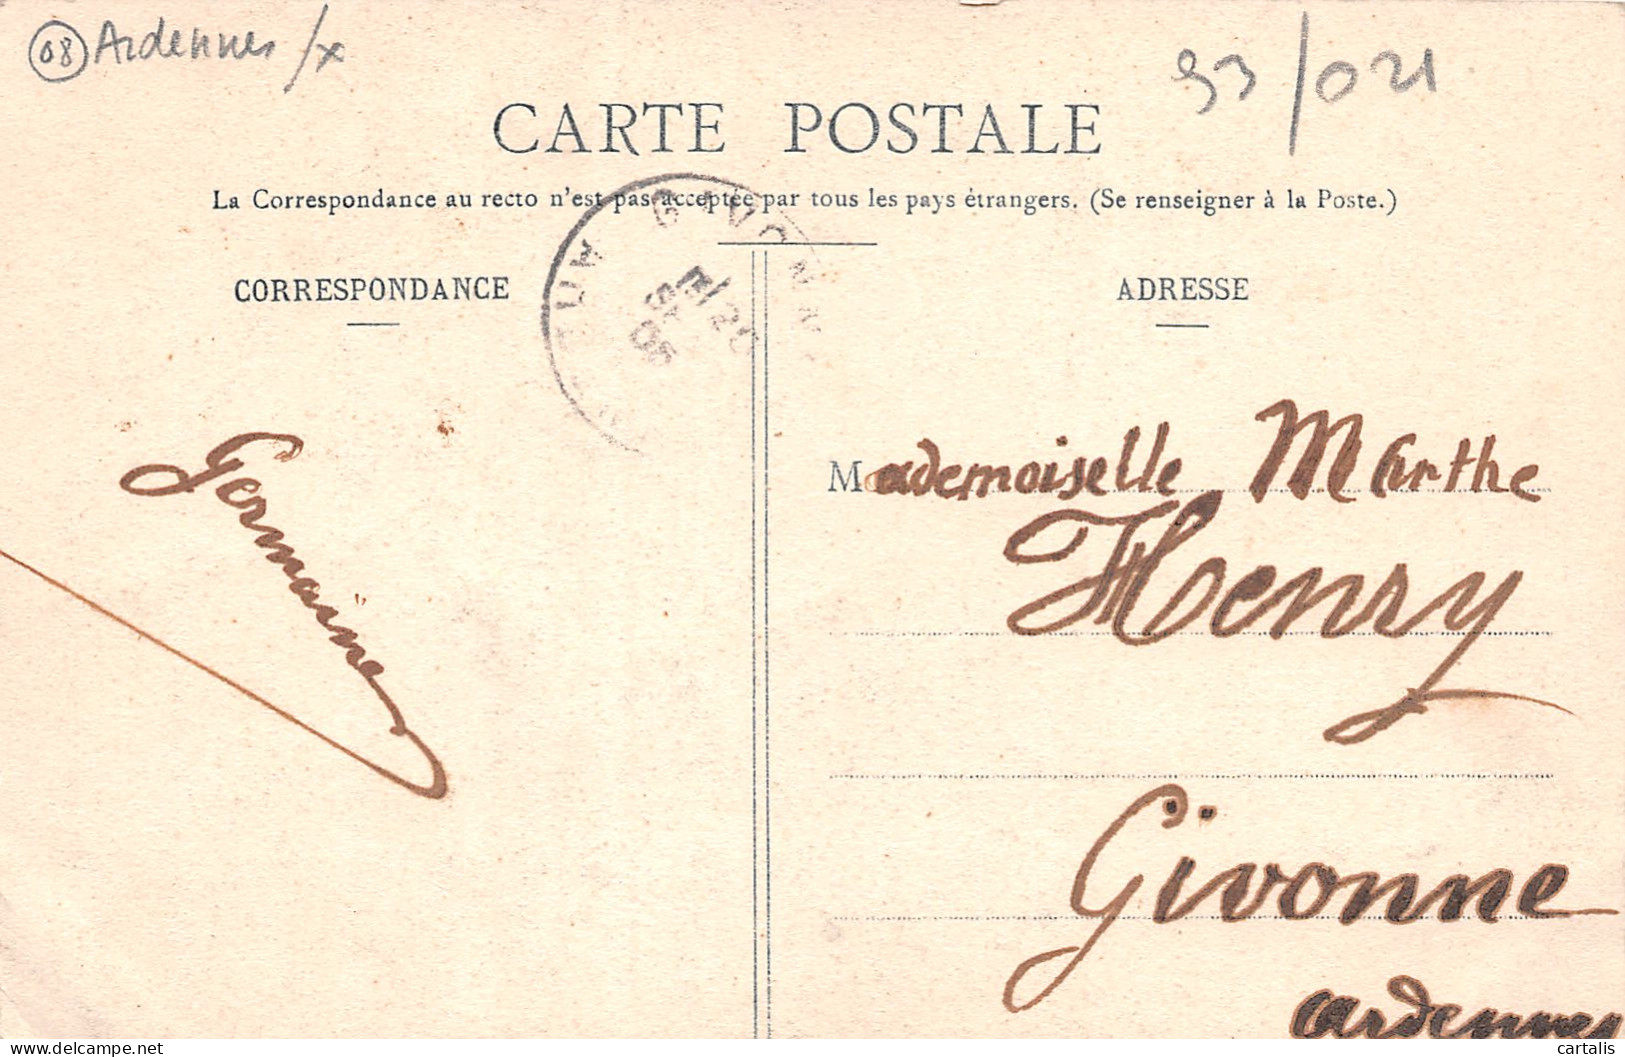 08 Ardennes /x
93/021
CARTE POSTALE
La Correspondance au recto n'est pas acceptée par tous les pays étrangers. (Se renseigner à la Poste.)
GIVONNE
CORRESPONDANCE
ADRESSE
Germaine
Mademoiselle Marthe
Henry
Givonne
Ardennes
delcampe.net
cartalis